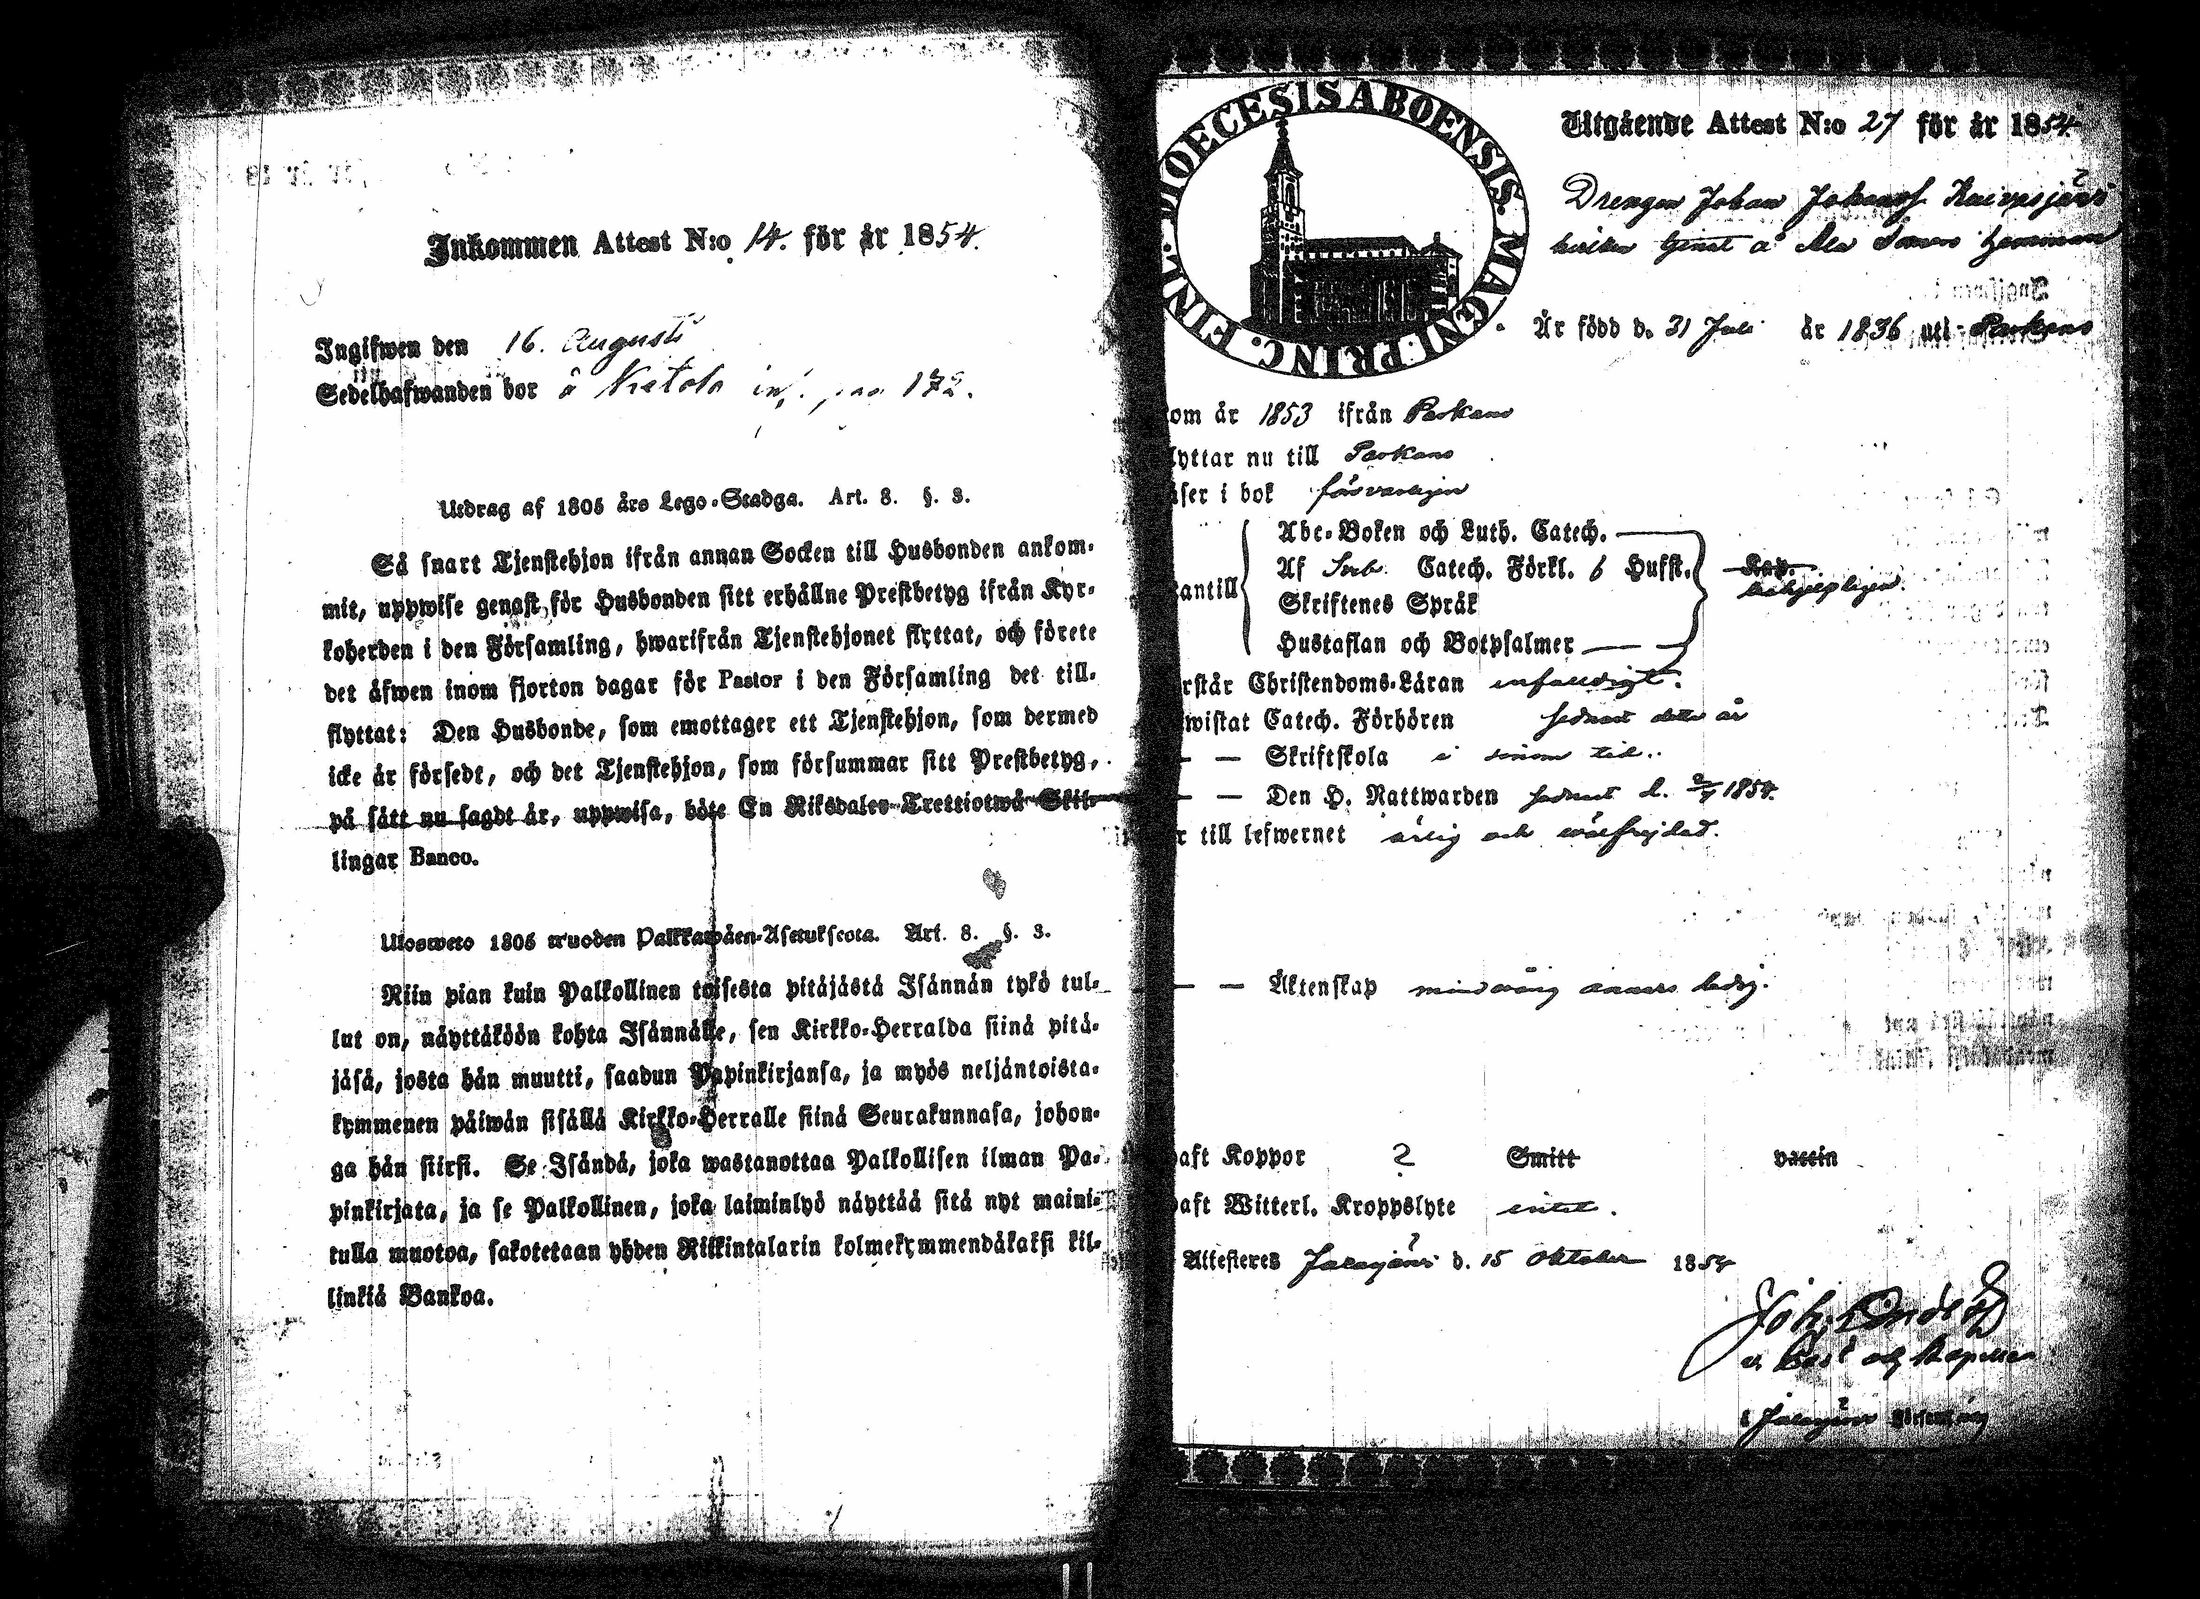 Inkommen Attest N:o 14. för år 1854.
Ingifwen den 16. Augusti
Sedelhafwanden bor å Ketola 172.
Utdrag af 1805 års Lego-Stadga. Art. 8. §. 3.
Så snart Tjenstehjon ifrån annan Socken till Husbonden ankom-
mit, uppwise genast för Husbonden sitt erhållne Prestbetyg ifrån Kyr-
koherden i den Församling, hwarifrån Tjenstehjonet flyttat, och förete
det äfwen inom fjorton dagar för Pastor i den Församling det till-
flyttat: Den Husbonde, som emottager ett Tjenstehjon, som dermed
icke är försedt, och det Tjenstehjon, som försummar sitt Prestbetyg,
på sätt nu sagdt är, uppwisa, böte En Riksdaler Trettiotwå Skil-
lingar Banco.
Uloswero 1805 wuoden Palkkawäen-Asetuksesta. Art. 8. §. 3.
Niin pian kuin Palkollinen toisesta pitäjästä Isännän tykö tul-
lut on, näyttäköön kohta Isännälle, sen Kirkko-Herralda siinä pitä-
jäsä, josta hän muutti, saadun Papinkirjansa, ja myös neljäntoista-
kymmenen päiwän sisällä Kirkko-Herralle siinä Seurakunnasa, johon-
ga hän siirsi. Se Isändä, joka wastanottaa Palkollisen ilman Pa-
pinkirjata, ja se Palkollinen, joka laiminlyö näyttää sitä nyt maini-
tulla muotoa, sakotetaan yhden Riikintalarin kolmekymmendäkaksi kil-
linkiä Bankoa.
DIOECESIS ABOENSIS. MAGNI PRINC. FINL.
Utgående Attest N:o 27 för år 1854.
Drengen Johan Johansf.
å Ala hemman
Är född d. 31 Juli år 1836 uti Parkano
kom år 1853 ifrån Parkano
lyttar nu till Parkano
äser i bok försvarligen
Abc-Boken och Luth. Catech.
Af Sveb. Catech. Förkl. 6 Hufst.
antill Skriftenes Språk
Hustaflan och Botpsalmer
rstår Christendoms-Läran enfaldigt.
wistat Catech. Förhören sednast detta år
— — Skriftskola i sinom tid.
— — Den H. Nattwarden sednast d. 1854.
r till lefwernet ärlig och välfrejdad.
— — Äktenskap minderårig annars ledig.
haft Koppor ? Smitt vaccin
haft Witterl. Kroppslyte intet.
Attesteres Jalasjärvi d. 15 Oktober 1854
Joh.
v. Past och Kapellan
i Jalasjärvi församling